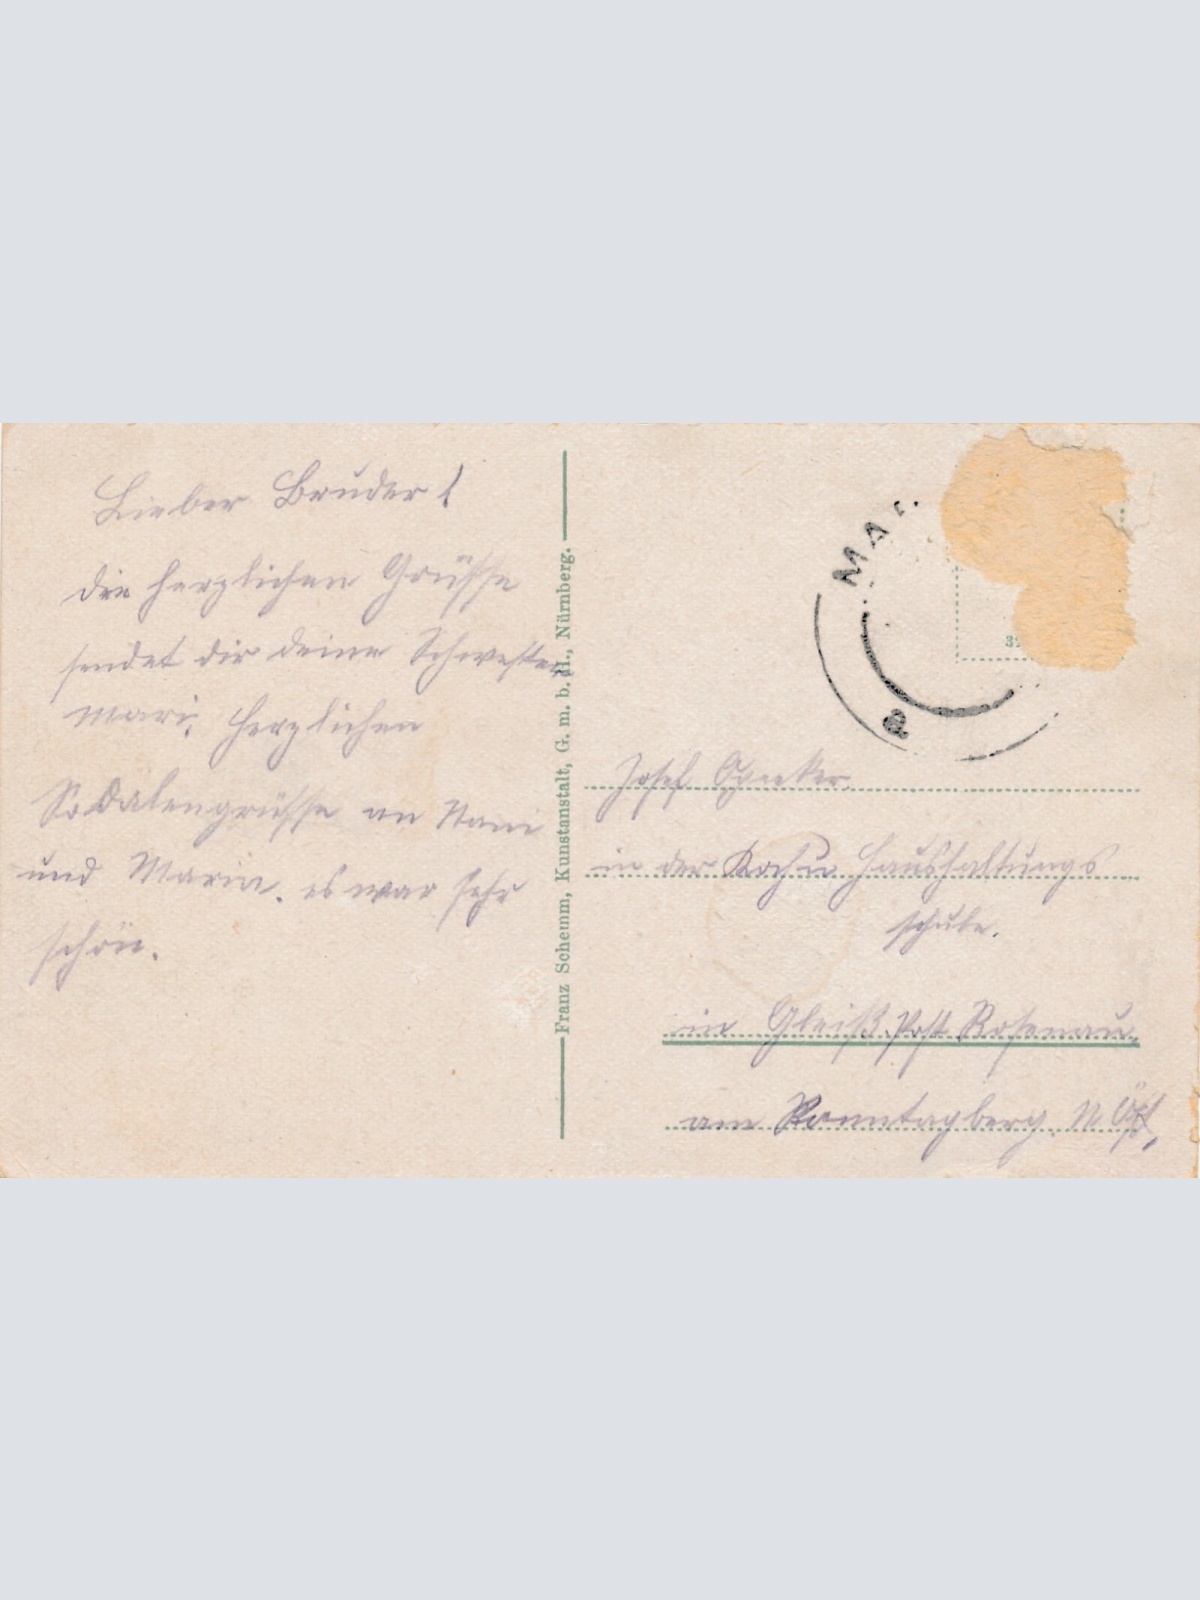 Lieber Bruder!
die herzlichen Grüsse
sendet dir deine Schwester
Mari. Herzlichen
Sodalengrüsse an Nani
und Maria. es war sehr
schön.
Franz Schemm, Kunstanstalt, G. m. b. H., Nürnberg.
MA
a
Josef
in der Koch u Haushaltungs
schule.
in Gleiß. Post Rosenau
am Sonntagberg. N. Öst.